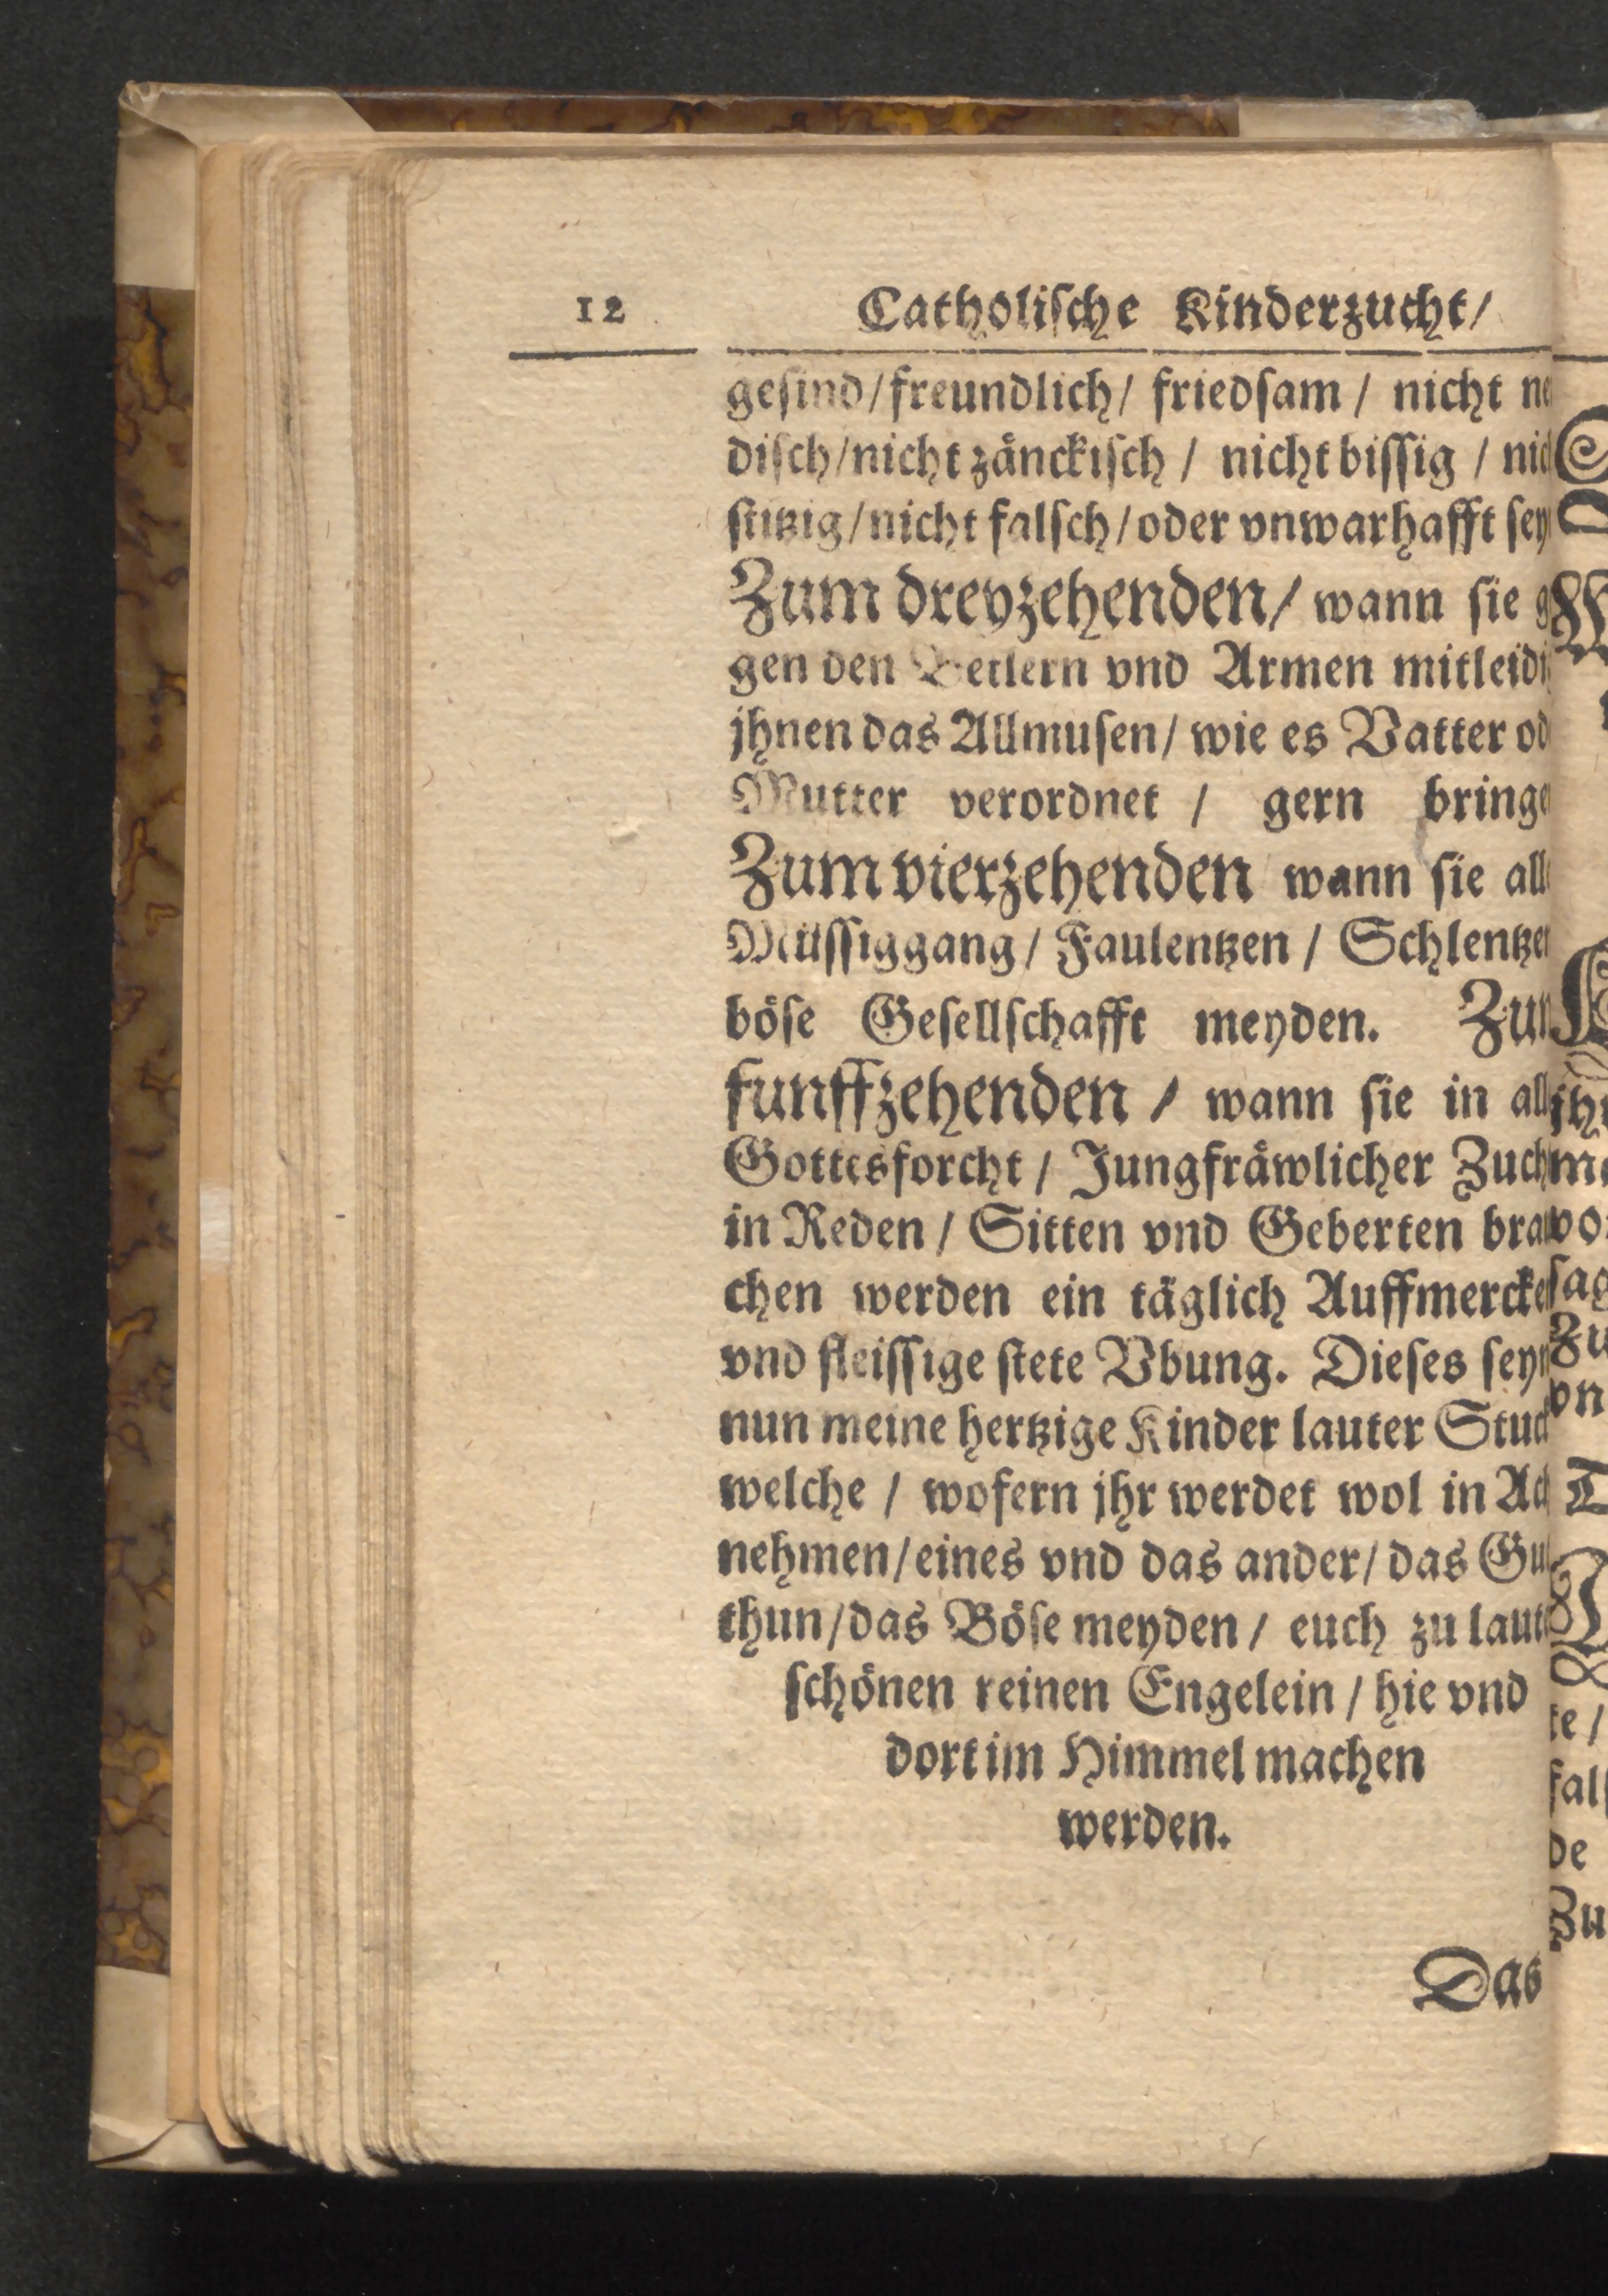 12 Catholische Kinderzucht/
gesind/freundlich/ friedsam / nicht ne
disch/nicht zänckisch / nicht bissig / nic
stitzig/nicht falsch/oder vnwarhafft sey
Zum dreyzehenden/ wann sie g
gen den Betlern vnd Armen mitleidi
jhnen das Allmusen/ wie es Vatter od
Mutter verordnet / gern bringe
Zum vierzehenden wann sie all
Müssiggang/ Faulentzen / Schlentze
böse Gesellschafft meyden. Zu
funffzehenden / wann sie in all
Gottesforcht / Jungfräwlicher Zuch
in Reden / Sitten vnd Geberten bra
chen werden ein täglich Auffmercke
vnd fleissige stete Vbung. Dieses sey
nun meine hertzige Kinder lauter Stuc
welche / wofern jhr werdet wol in Ac
nehmen/eines vnd das ander/ das Gu
thun/das Böse meyden / euch zu laut
schönen reinen Engelein / hie vnd
dort im Himmel machen
werden.
Das